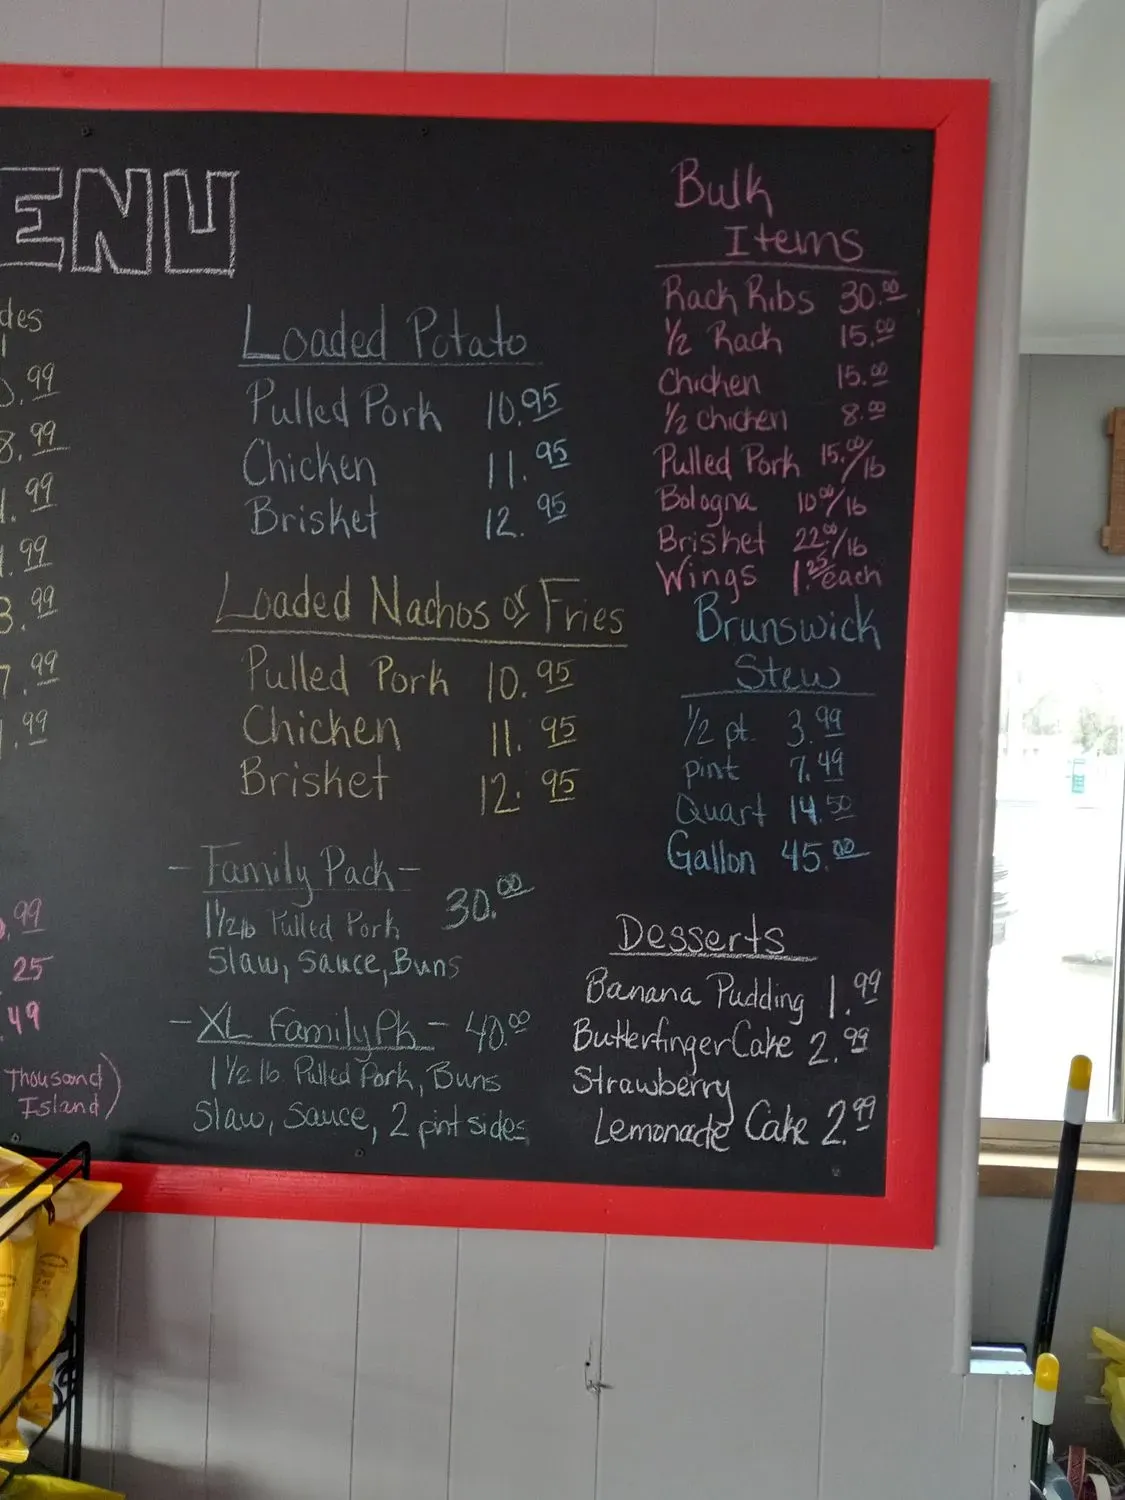 ENU
des
.99
8.99
.99
.99
3.99
7.99
.99
.99
25
49
Thousand
Island)
Loaded Potato
Pulled Pork 10.95
Chicken 11.95
Brisket 12.95
Loaded Nachos or Fries
Pulled Pork 10.95
Chicken 11.95
Brisket 12.95
- Family Pack -
30.00
1 1/2 lb Pulled Pork
Slaw, Sauce, Buns
- XL Family Pk - 40.00
1 1/2 lb. Pulled Pork, Buns
Slaw, Sauce, 2 pint sides
Bulk
Items
Rack Ribs 30.00
1/2 Rack 15.00
Chicken 15.00
1/2 chicken 8.00
Pulled Pork 15.00/lb
Bologna 10.00/lb
Brisket 22.00/lb
Wings 1.25/each
Brunswick
Stew
1/2 pt. 3.99
pint 7.49
Quart 14.50
Gallon 45.00
Desserts
Banana Pudding 1.99
Butterfinger Cake 2.99
Strawberry
Lemonade Cake 2.99